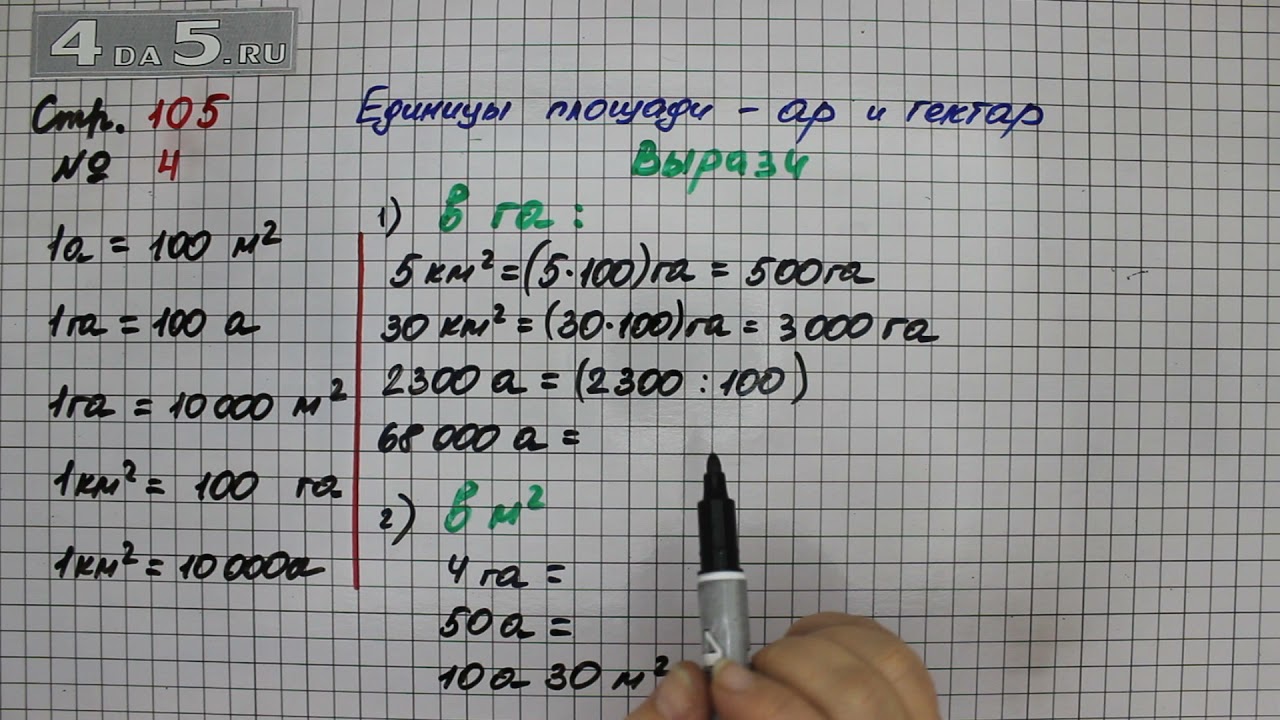 4 DA 5.RU
Стр. 105
№ 4
Единицы площади - ар и гектар
Вырази
1a = 100 м²
1га = 100 а
1га = 10 000 м²
1км² = 100 га
1км² = 10 000а
1) в га:
5 км² = (5·100)га = 500га
30 км² = (30·100)га = 3 000 га
2300 а = (2300 : 100)
68 000 а =
2) в м²
4 га =
50а =
10а 30 м²